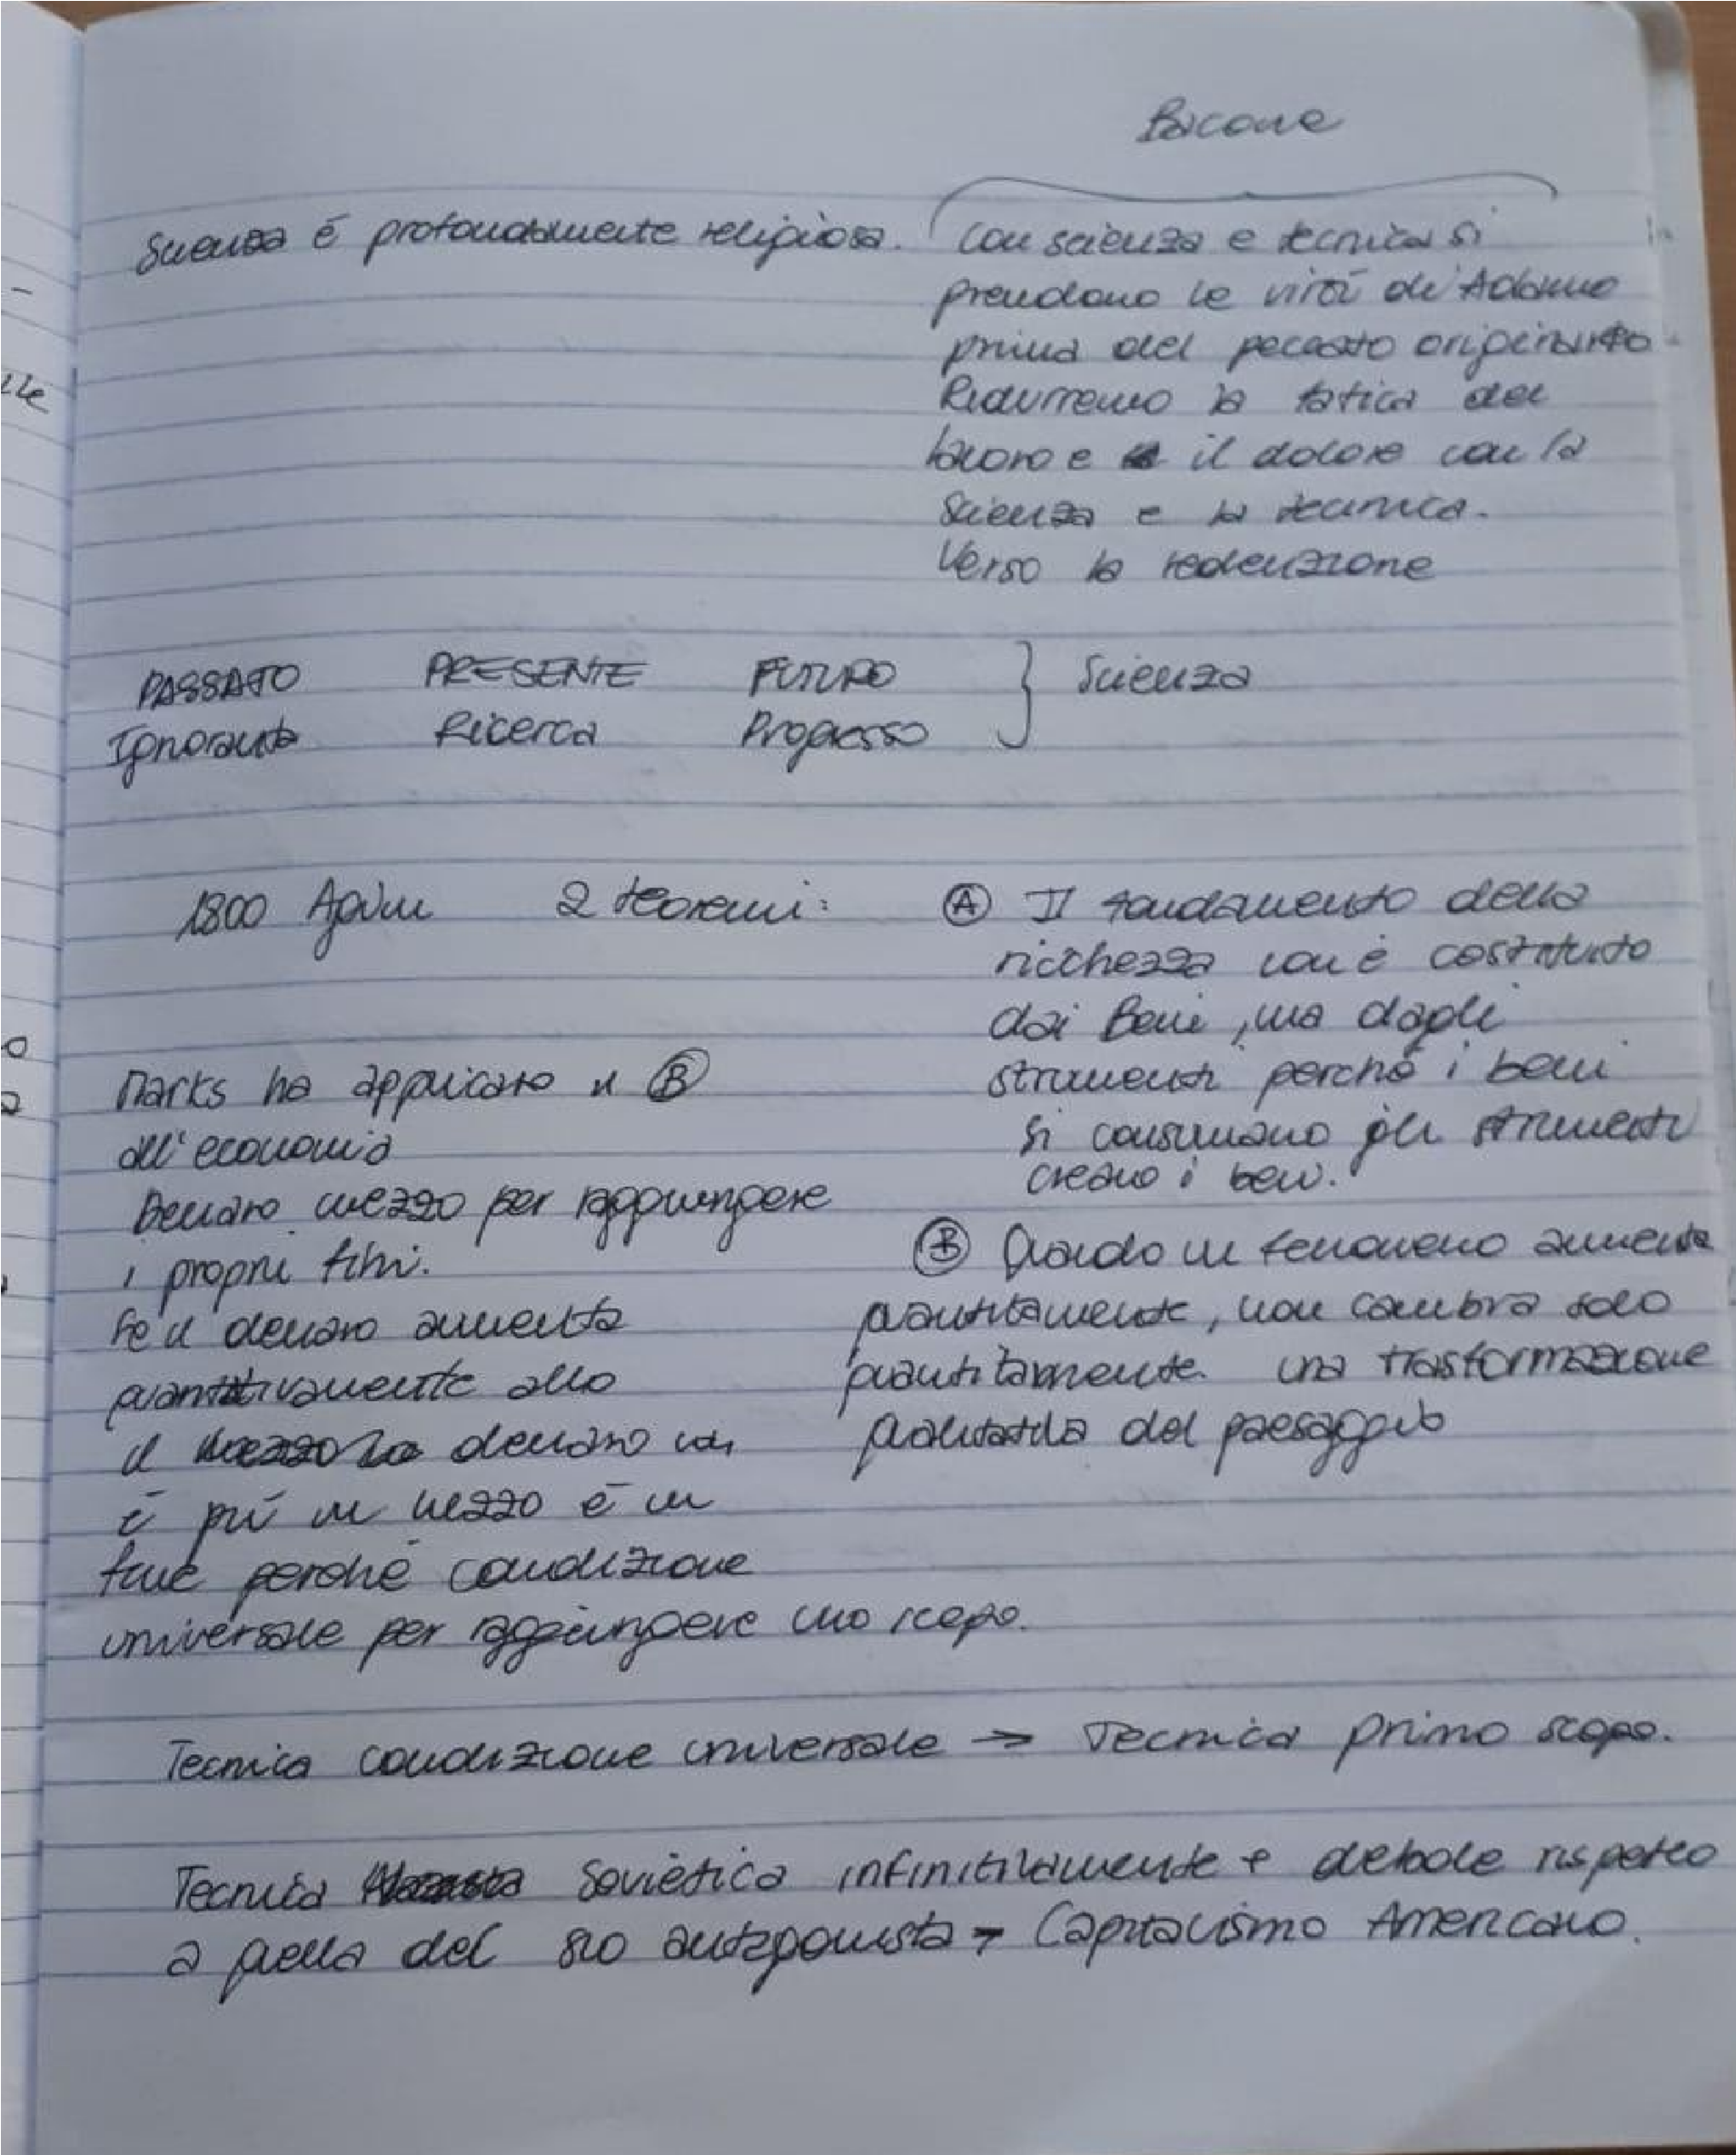 Bacone
Scienza é profondamente religiosa.
Con scienza e tecnica si
prendono le virtú di Adamo
prima del peccato originario.
Ridurremo la fatica del
lavoro e il dolore con la
Scienza e la tecnica.
Verso la redenzione
PASSATO PRESENTE FUTURO } Scienza
Ignoranza Ricerca Progresso
1800 2 teoremi:
Ⓐ Il fondamento della
ricchezza non é costituito
dai Beni, ma dagli
strumenti perché i beni
si consumano gli strumenti
creano i beni.
Ⓑ Quando un fenomeno aumenta
quantitamente, non cambia solo
quantitamente. una trasformazione
qualitativa del paesaggio
Marks ha applicato il Ⓑ
all'economia
Denaro mezzo per raggiungere
i propri fini.
Se il denaro aumenta
quantitativamente allo
il denaro non
é piú un mezzo é un
fine perché condizione
universale per raggiungere uno scopo.
Tecnica condizione universale → Tecnica primo scopo.
Tecnica Soviética infinitivamente + debole rispetto
a quella del suo antagonista → Capitalismo Americano.